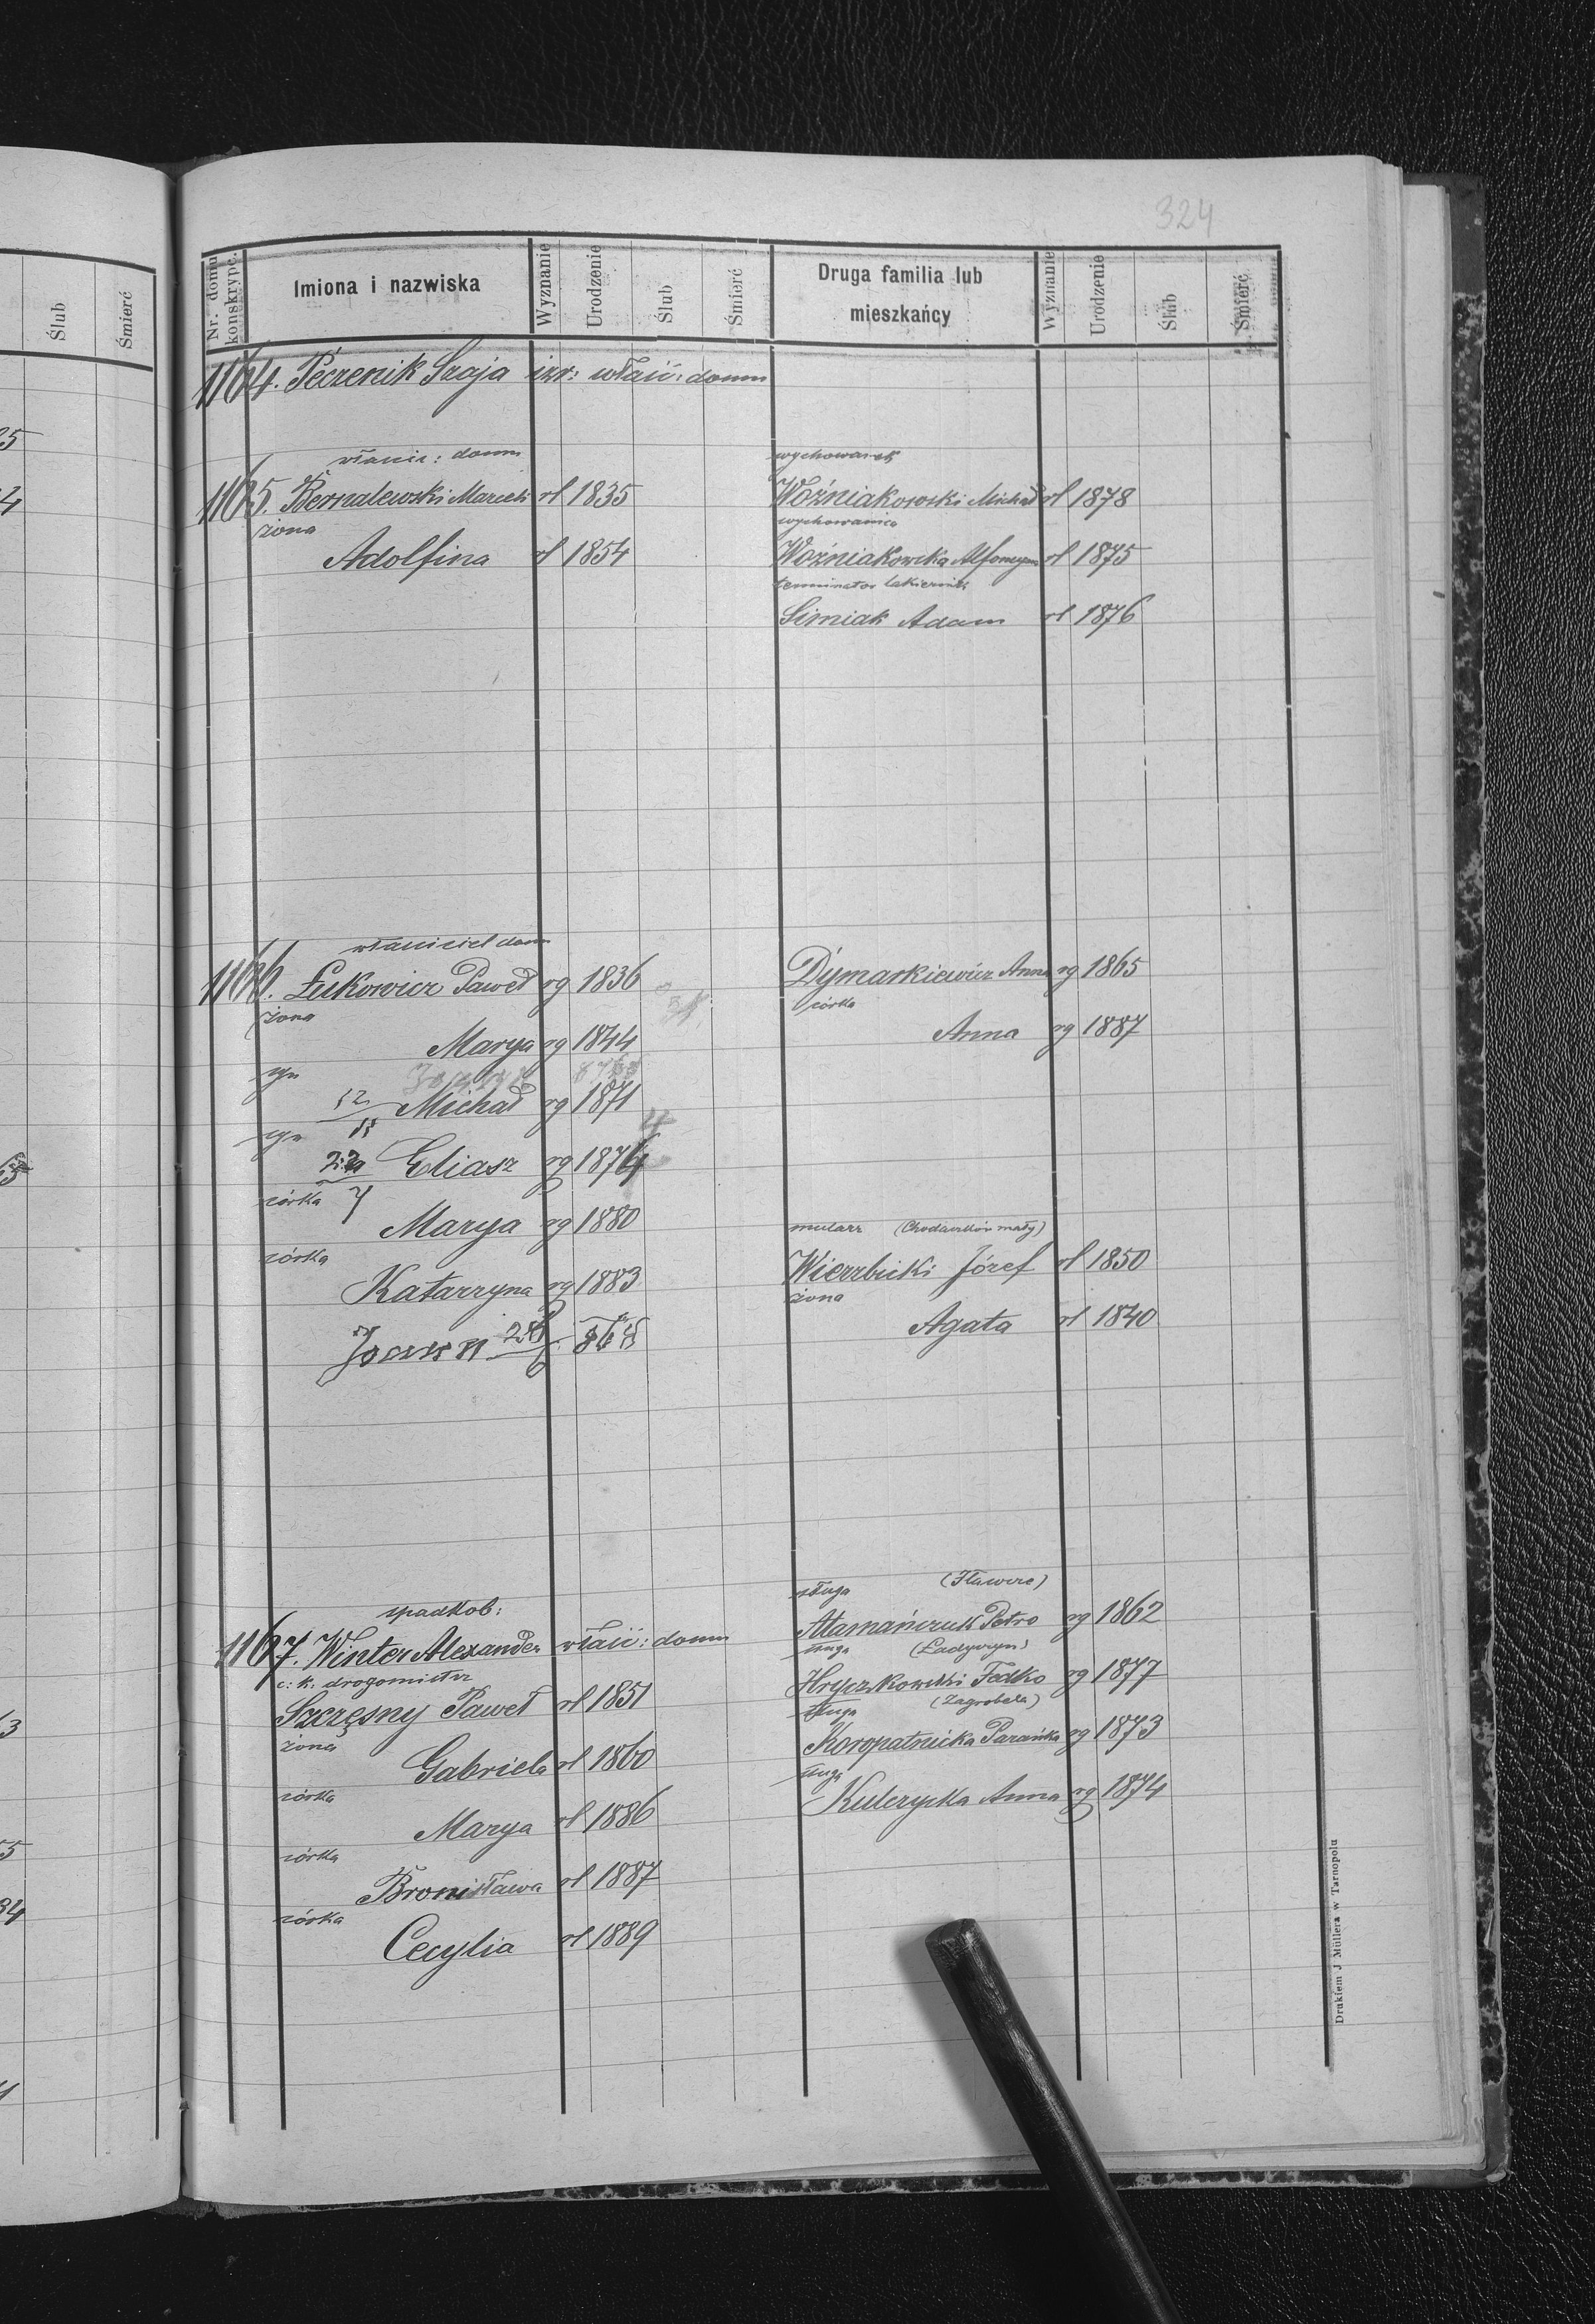 324
Nr. domu konskrypc. Imiona i nazwiska Wyznanie Urodzenie Ślub Śmierć Druga familia lub mieszkańcy Wyznanie Urodzenie Ślub Śmierć
Ślub Śmierć
1164. Peczenik Szaja izr: właść: domu
właścic: domu
1165. Bernalewski Marceli rl 1835
żona
Adolfina rl 1854
wychowanek
Woźniakowski Michał rl 1878
wychowanica
Woźniakowska Alfonsyna rl 1875
terminator lakiernik
Simiak Adam rl 1876
właściciel domu
1166. Łukowicz Paweł rg 1836
żona
Marya rg 1844
syn
Michał rg 1871
syn
Eliasz rg 1874
córka
Marya rg 1880
córka
Katarzyna rg 1883
Dymarkiewicz Anna rg 1865
córka
Anna rg 1887
mularz (Chodaczków mały)
Wierzbicki Józef rl 1850
żona
Agata rl 1840
spadkob:
1167. Winter Alexander właść: domu
c: k: drogomistrz
Szczęsny Paweł rl 1851
żona
Gabriela rl 1860
córka
Marya rl 1886
córka
Bronisława rl 1887
córka
Cecylia rl 1889
sługa (Iławcze)
Atamańczuk Petro rg 1862
sługa (Ładyczyn)
Hryczkowski Fedko rg 1877
sługa (Zagrobela)
Koropatnicka Parańka rg 1873
sługa
Kulczycka Anna rg 1874
Drukiem J Müllera w Tarnopolu